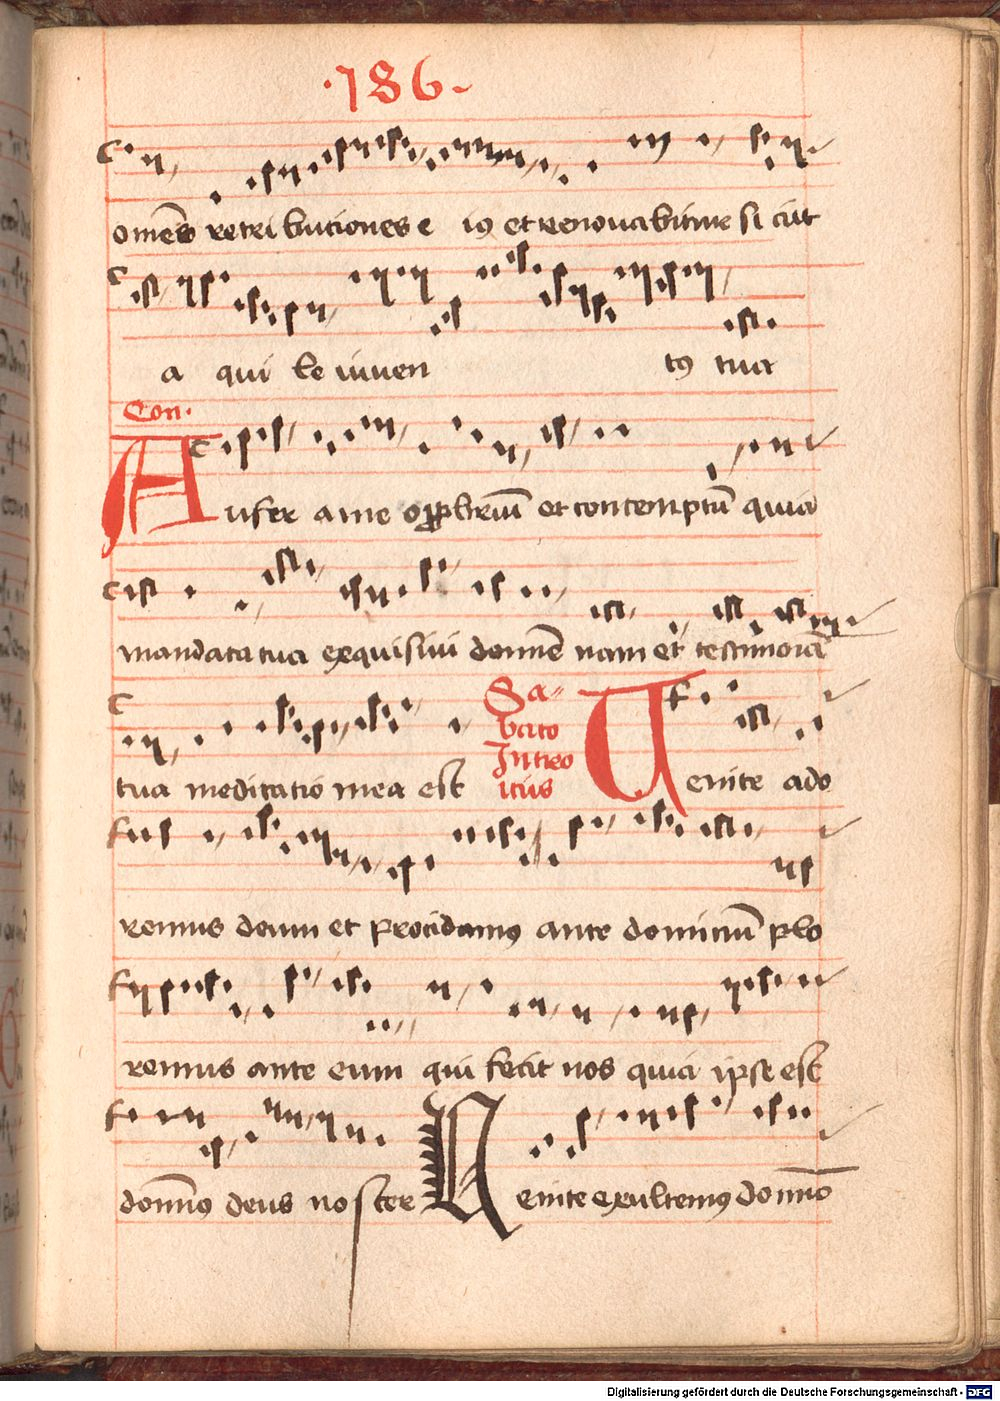 ·186·
omnēs retri butiones e ius et renovabitur si cut
a qui le iuven tus tua
Con·
Aufer a me opprbriū et contemptū quia
mandata tua exquisivi domīne nam et testimonia
tua meditatio mea est
Sa-
bato
Introo
itus
Venite ado
remus deum et procidamus ante dominū plo
remus ante eum qui fecit nos quia ipse est
domīnus deus noster Venite exultemus domīno
Digitalisierung gefördert durch die Deutsche Forschungsgemeinschaft - DFG